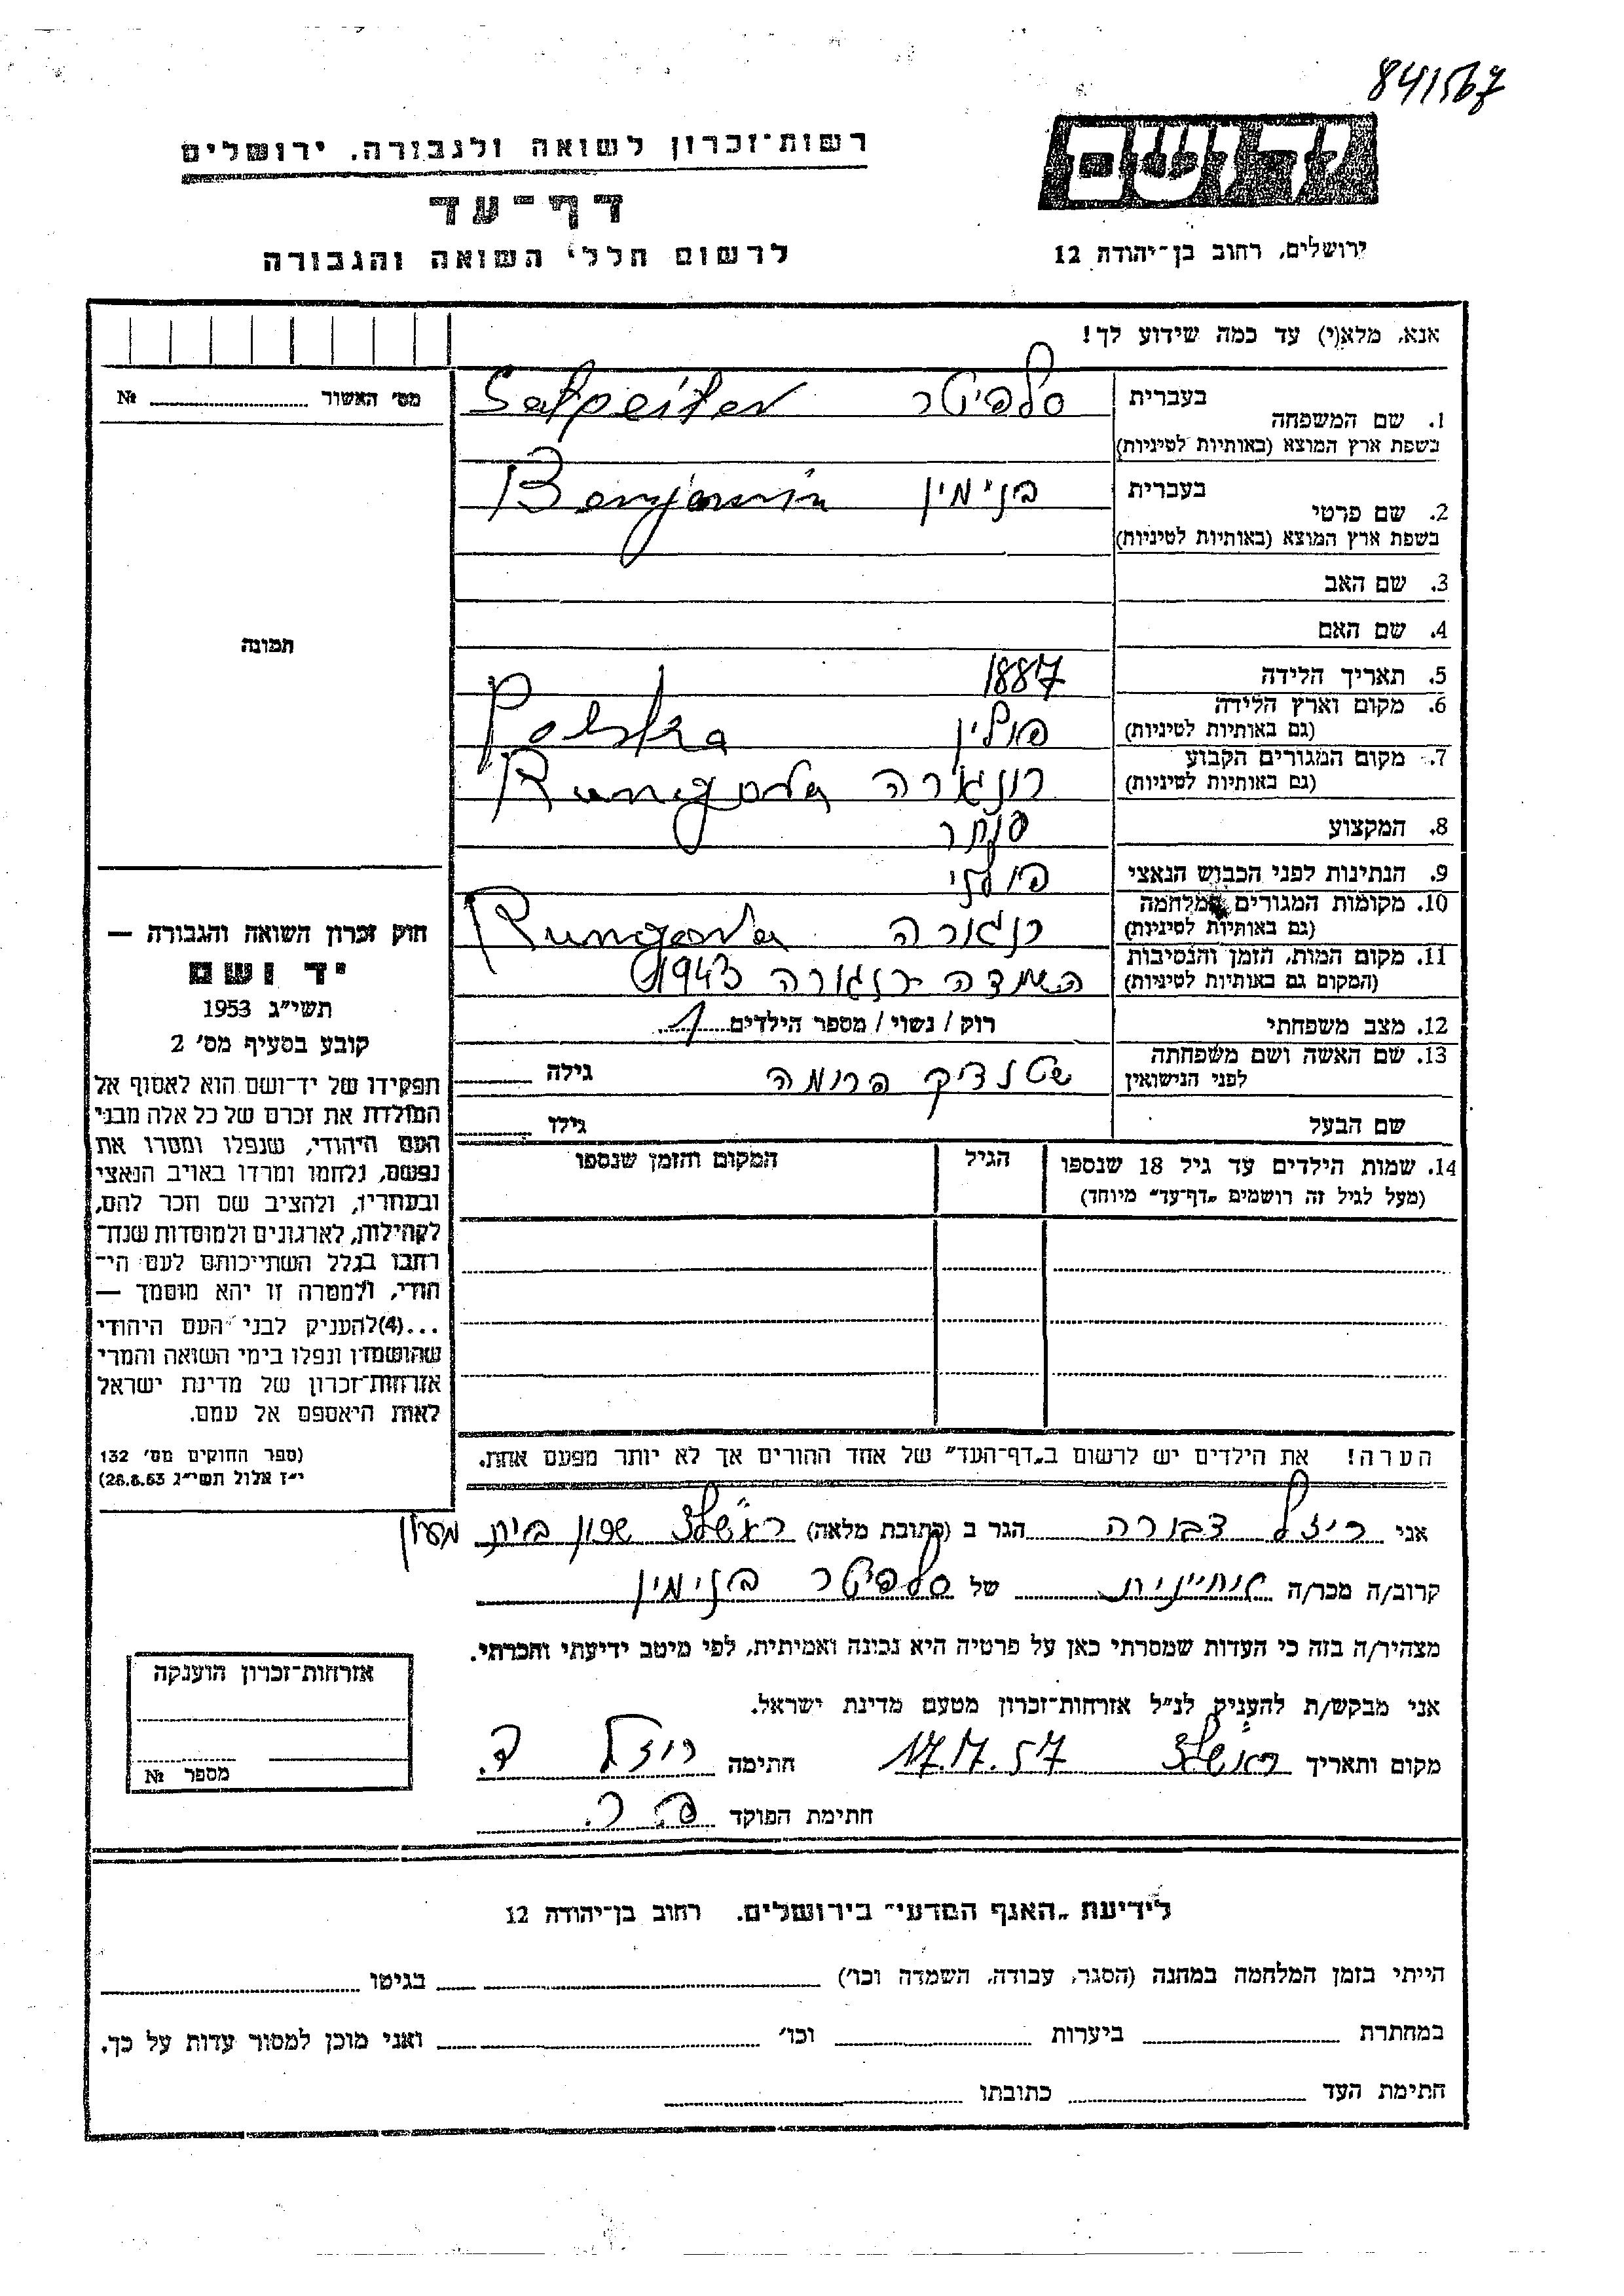 841567
יד ושם
רשות־זכרון לשואה ולגבורה, ירושלים
דף־עד
לרשום חללי השואה והגבורה
ירושלים, רחוב בן־יהודה 12
אנא, מלא(י) עד כמה שידוע לך!
מס׳ האשור № 
1. שם המשפחה בעברית סלפיטר Salpeiter
בשפת ארץ המוצא (באותיות לטיניות)
2. שם פרטי בעברית בנימין Benjamin
בשפת ארץ המוצא (באותיות לטיניות)
3. שם האב
4. שם האם
תמונה
5. תאריך הלידה 1887
6. מקום וארץ הלידה פולין Polska
(גם באותיות לטיניות)
7. מקום המגורים הקבוע רונגורה Rungora
(גם באותיות לטיניות)
8. המקצוע סוחר
9. הנתינות לפני הכבוש הנאצי פולני
10. מקומות המגורים במלחמה רנגורה Rungora
(גם באותיות לטיניות)
11. מקום המות, הזמן והנסיבות השמדה רנגורה 1943
(המקום גם באותיות לטיניות)
12. מצב משפחתי רוק / נשוי / מספר הילדים 1
13. שם האשה ושם משפחתה פרומה גילה
לפני הנישואין
שם הבעל גילו
14. שמות הילדים עד גיל 18 שנספו הגיל המקום והזמן שנספו
(מעל לגיל זה רושמים „דף־עד״ מיוחד)
הערה! את הילדים יש לרשום ב„דף־העד״ של אחד ההורים אך לא יותר מפעם אחת.
חוק זכרון השואה והגבורה —
יד ושם
תשי״ג 1953
קובע בסעיף מס׳ 2
תפקידו של יד־ושם הוא לאסוף אל
המולדת את זכרם של כל אלה מבני
העם היהודי, שנפלו ומסרו את
נפשם, נלחמו ומרדו באויב הנאצי
ובעוזריו, ולהציב שם וזכר להם,
לקהילות, לארגונים ולמוסדות שנח־
רבו בגלל השתייכותם לעם הי־
הודי, ולמטרה זו יהא מוסמך —
...(4) להעניק לבני העם היהודי
שהושמדו ונפלו בימי השואה והמרי
אזרחות־זכרון של מדינת ישראל
לאות היאספם אל עמם.
(ספר החוקים מס׳ 132
י״ז אלול תשי״ג 28.8.53)
אני ריזל דבורה הגר ב (כתובת מלאה) ראשל״צ שכון בית
קרוב/ה מכר/ה אחיינית של סלפיטר בנימין
מצהיר/ה בזה כי העדות שמסרתי כאן על פרטיה היא נכונה ואמיתית, לפי מיטב ידיעתי והכרתי.
אני מבקש/ת להעניק לנ״ל אזרחות־זכרון מטעם מדינת ישראל.
מקום ותאריך ראשל״צ 17.7.57 חתימה ריזל ד.
חתימת הפוקד פ. ר.
אזרחות־זכרון הוענקה
מספר №
לידיעת „האגף המדעי״ בירושלים, רחוב בן־יהודה 12
הייתי בזמן המלחמה במחנה (הסגר, עבודה, השמדה וכו׳) בגיטו
במחתרת ביערות וכו׳ ואני מוכן למסור עדות על כך.
חתימת העד כתובתו